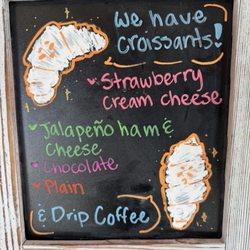 We have
Croissants!
Strawberry
Cream cheese
Jalapeño ham &
Cheese
Chocolate
Plain
& Drip Coffee